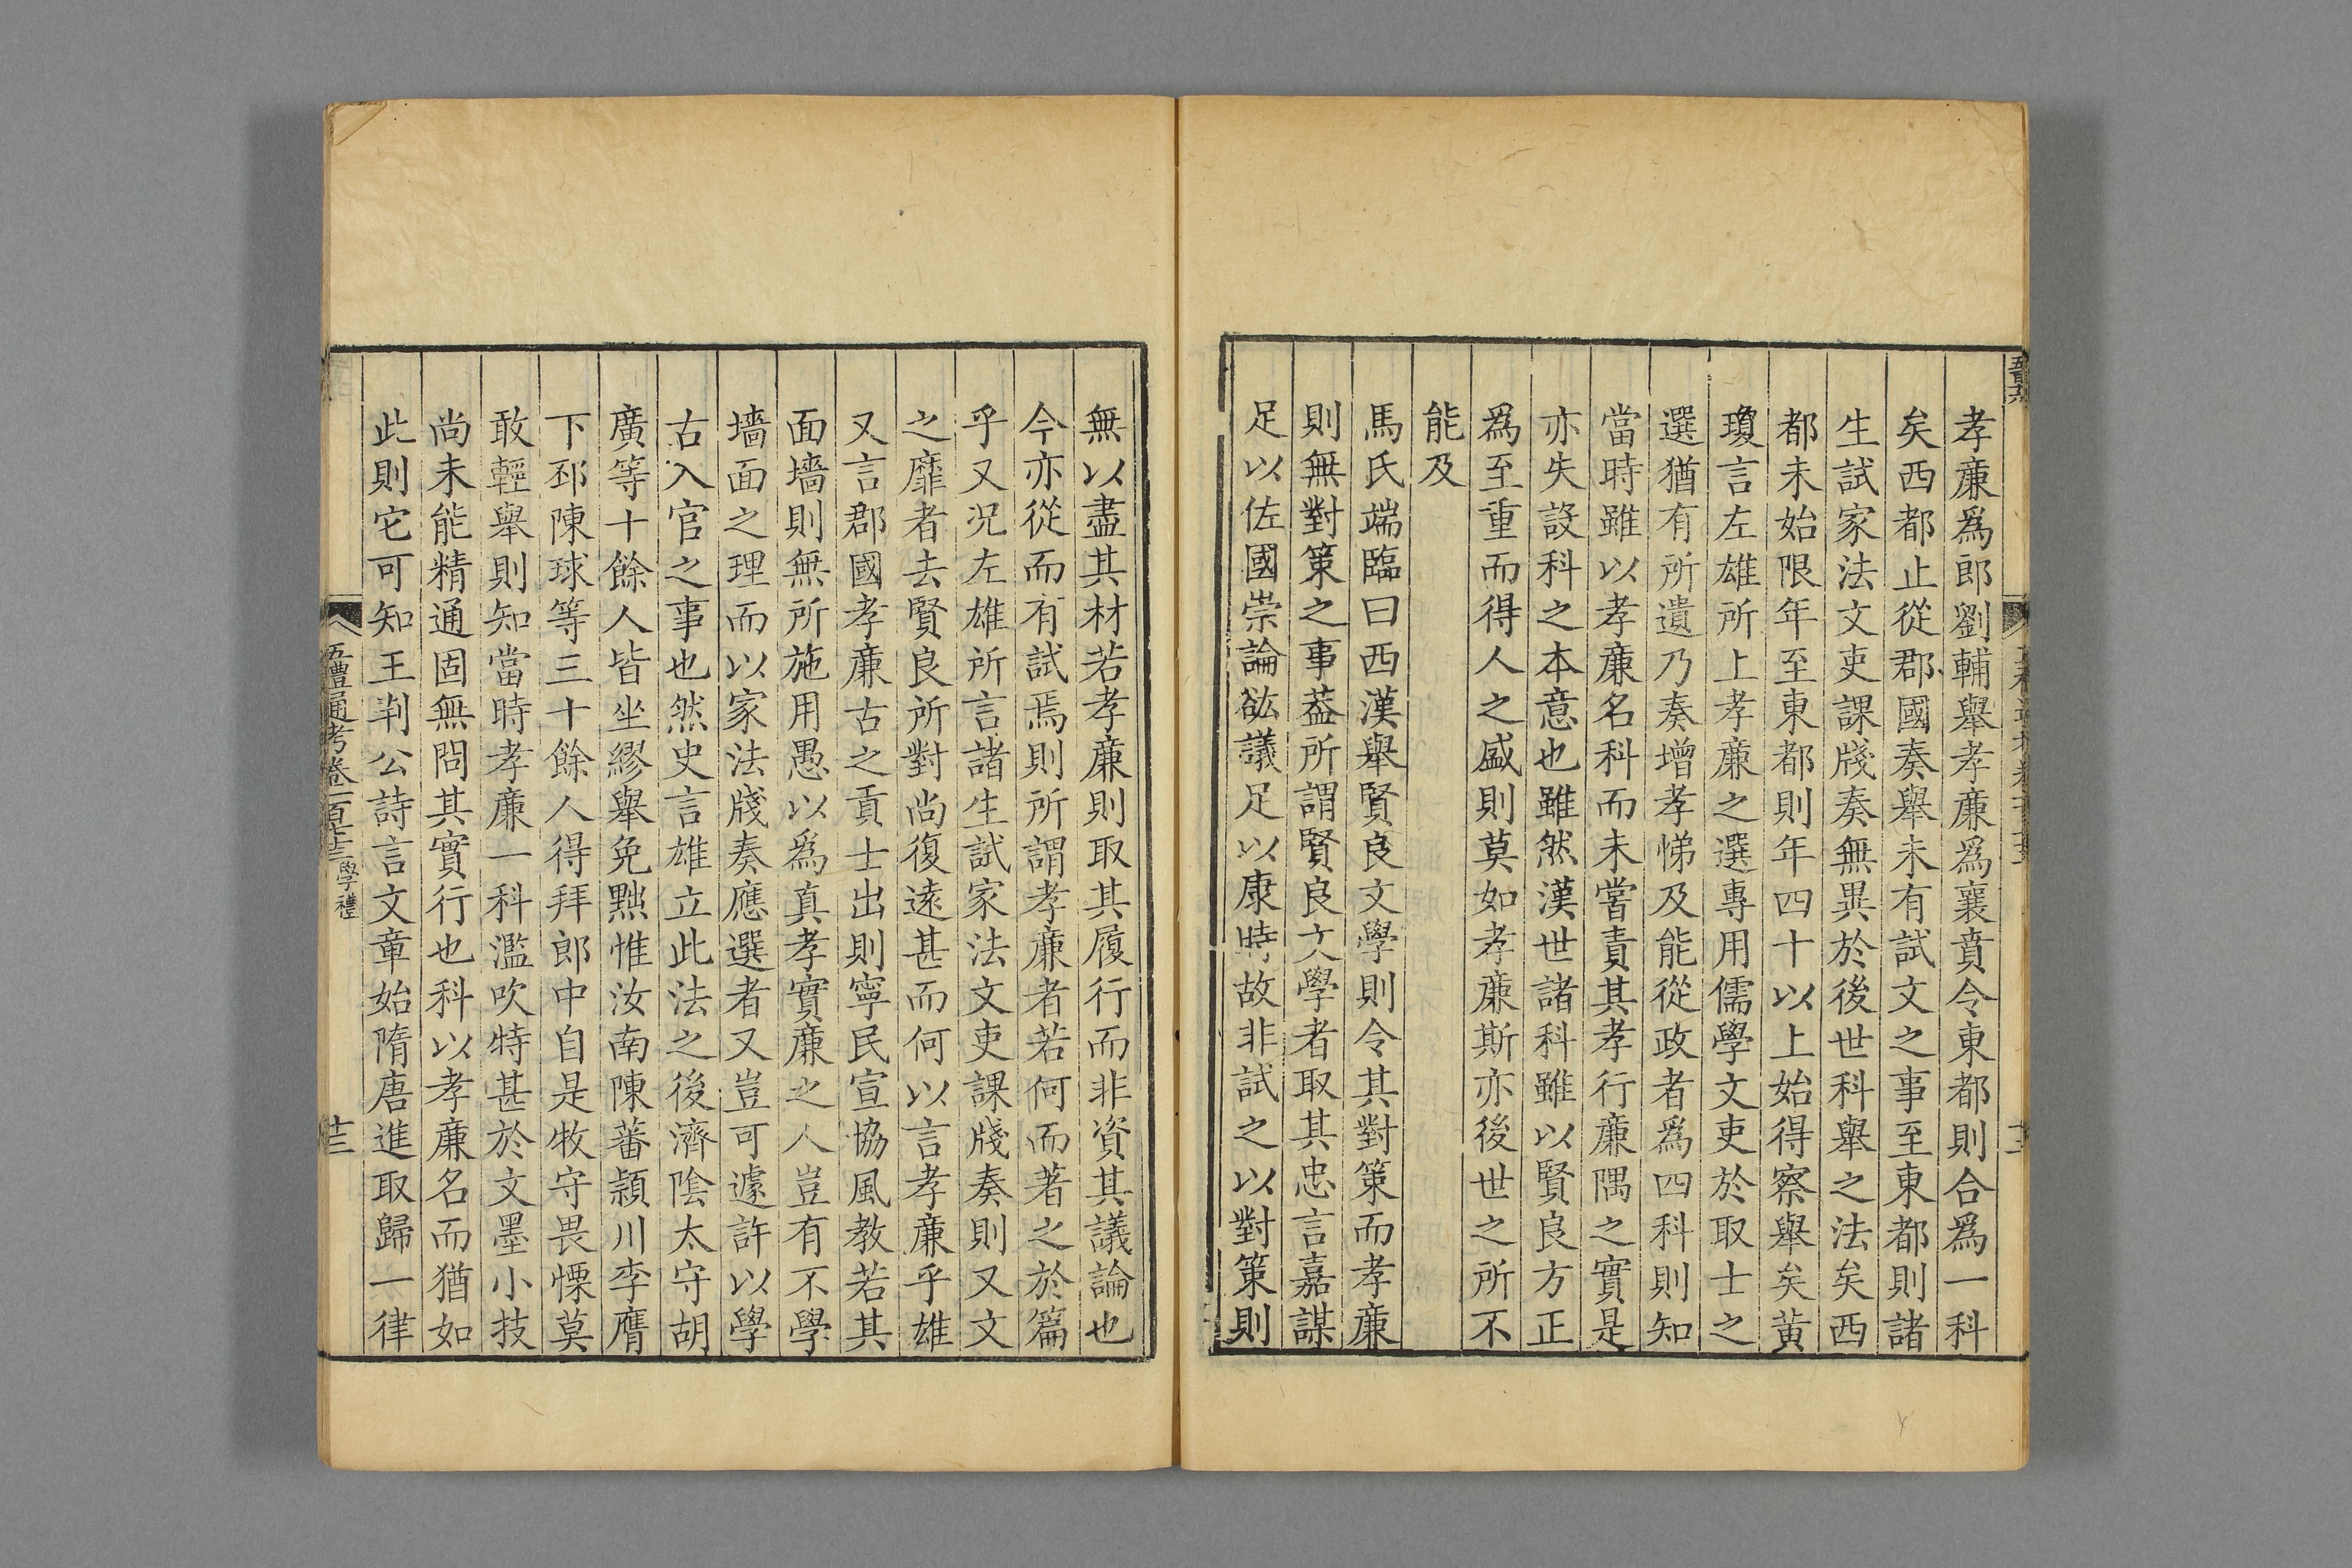 孝廉爲郎劉輔舉孝廉爲襄賁令東都則合爲一科
矣西都止從郡國奏舉未有試文之事至東都則諸
生試家法文吏課牋奏無異於後世科舉之法矣西
都未始限年至東都則年四十以上始得察舉矣黄
瓊言左雄所上孝廉之選專用儒學文吏於取士之
選猶有所遺乃奏增孝悌及能從政者爲四科則知
當時雖以孝廉名科而未嘗責其孝行廉隅之實是
亦失設科之本意也雖然漢世諸科雖以賢良方正
爲至重而得人之盛則莫如孝廉斯亦後世之所不
能及
馬氏端臨曰西漢舉賢良文學則令其對策而孝廉
則無對策之事葢所謂賢良文學者取其忠言嘉謀
足以佐國崇論谹議足以康時故非試之以對策則
無以盡其材若孝廉則取其履行而非資其議論也
今亦從而有試焉則所謂孝廉者若何而著之於篇
乎又況左雄所言諸生試家法文吏課牋奏則又文
之靡者去賢良所對尚復遠甚而何以言孝廉乎雄
又言郡國孝廉古之貢士出則寧民宣協風教若其
面墻則無所施用愚以爲真孝實廉之人豈有不學
墻面之理而以家法牋奏應選者又豈可遽許以學
古入官之事也然史言雄立此法之後濟陰太守胡
廣等十餘人皆坐繆舉免黜惟汝南陳蕃潁川李膺
下邳陳球等三十餘人得拜郎中自是牧守畏慄莫
敢輕舉則知當時孝廉一科濫吹特甚於文墨小技
尚未能精通固無問其實行也科以孝廉名而猶如
此則它可知王荆公詩言文章始隋唐進取歸一律
五禮通考卷一百七十三 學禮
十三